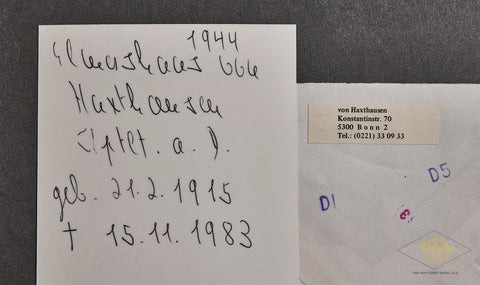 1944
Elmershaus von
Haxthausen
Kptlt. a. D.
geb. 21.2.1915
† 15.11.1983
von Haxthausen
Konstantinstr. 70
5300 Bonn 2
Tel.: (0221) 33 09 33
D1
D5
THE RUPTURED DUCK, LLC